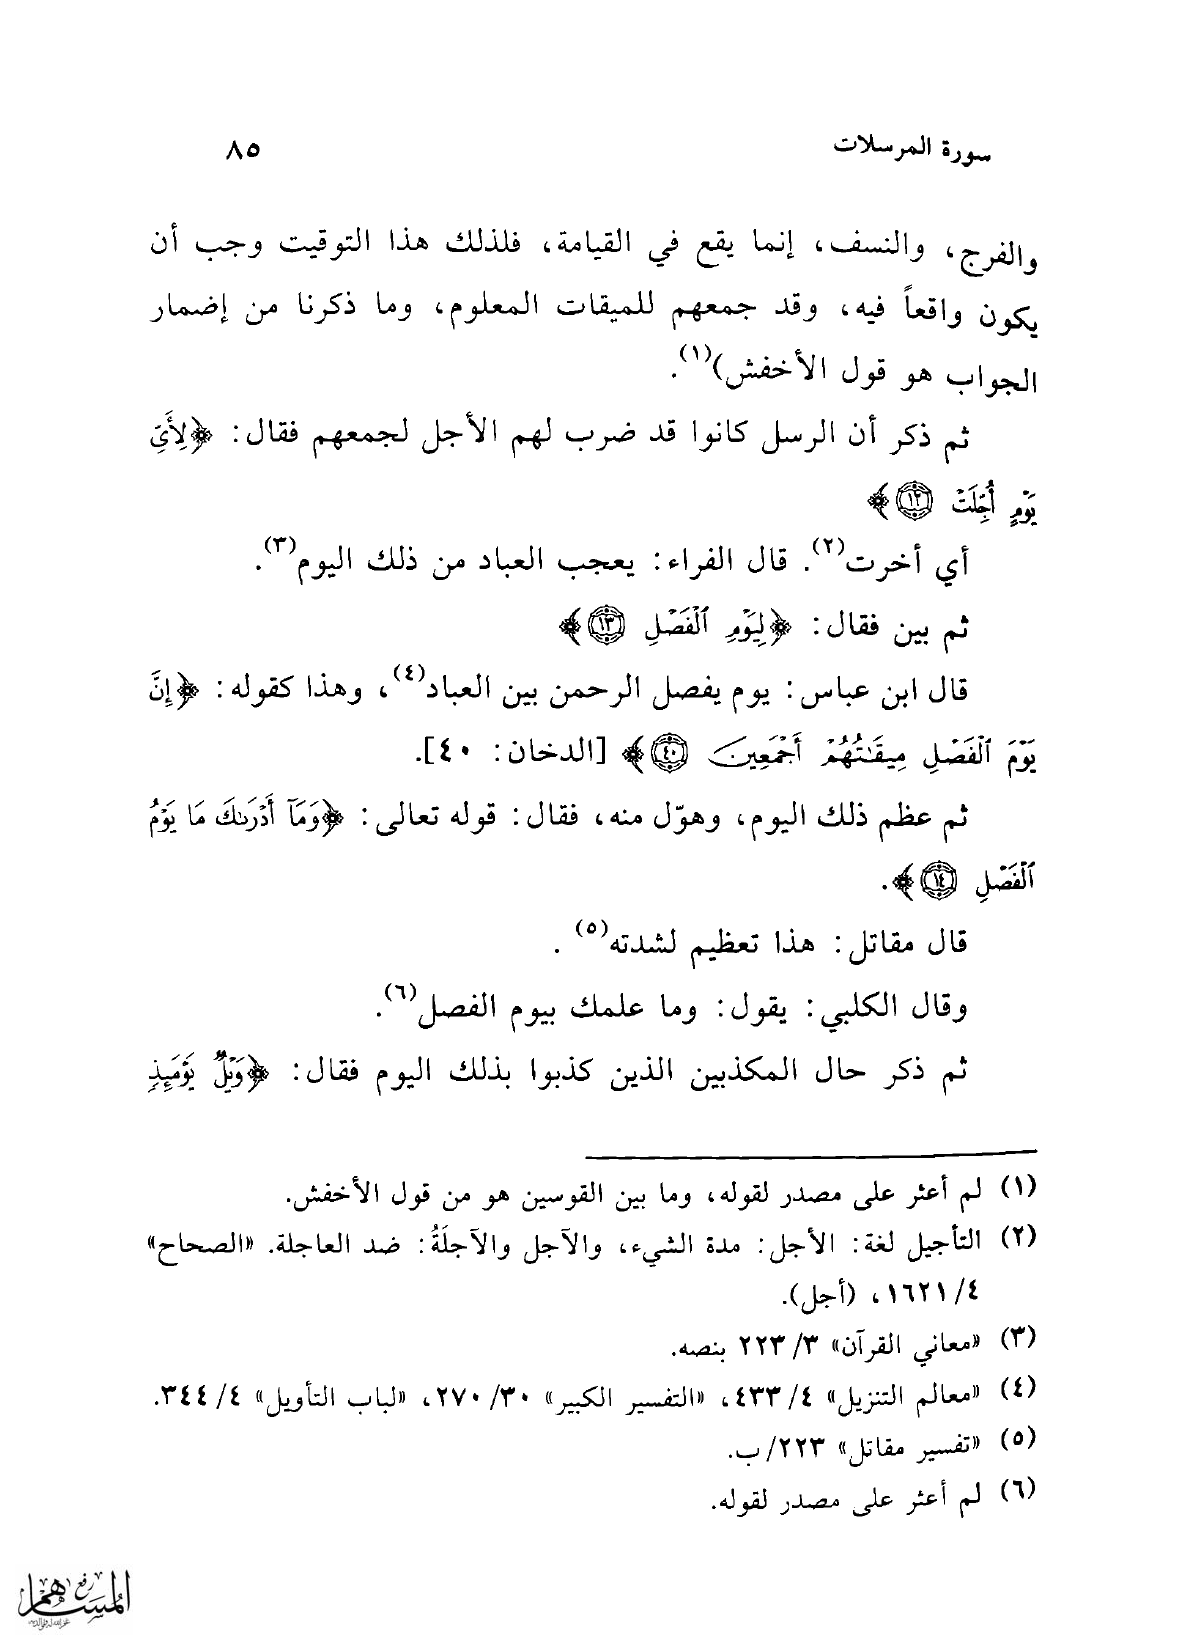 سورة المرسلات
٨٥
والفرج، والنسف، إنما يقع في القيامة، فلذلك هذا التوقيت وجب أن
يكون واقعاً فيه، وقد جمعهم للميقات المعلوم، وما ذكرنا من إضمار
الجواب هو قول الأخفش)(١).
ثم ذكر أن الرسل كانوا قد ضرب لهم الأجل لجمعهم فقال: ﴿لِأَيِّ
يَوْمٍ أُجِّلَتْ ١٢﴾
أي أخرت(٢). قال الفراء: يعجب العباد من ذلك اليوم(٣).
ثم بين فقال: ﴿لِيَوْمِ ٱلْفَصْلِ ١٣﴾
قال ابن عباس: يوم يفصل الرحمن بين العباد(٤)، وهذا كقوله: ﴿إِنَّ
يَوْمَ ٱلْفَصْلِ مِيقَٰتُهُمْ أَجْمَعِينَ ٤٠﴾ [الدخان: ٤٠].
ثم عظم ذلك اليوم، وهوّل منه، فقال: قوله تعالى: ﴿وَمَآ أَدْرَىٰكَ مَا يَوْمُ
ٱلْفَصْلِ ١٤﴾.
قال مقاتل: هذا تعظيم لشدته(٥) .
وقال الكلبي: يقول: وما علمك بيوم الفصل(٦).
ثم ذكر حال المكذبين الذين كذبوا بذلك اليوم فقال: ﴿وَيْلٌ يَوْمَئِذٍ
(١) لم أعثر على مصدر لقوله، وما بين القوسين هو من قول الأخفش.
(٢) التأجيل لغة: الأجل: مدة الشيء، والآجل والآجلَةُ: ضد العاجلة. «الصحاح»
٤/ ١٦٢١، (أجل).
(٣) «معاني القرآن» ٣/ ٢٢٣ بنصه.
(٤) «معالم التنزيل» ٤/ ٤٣٣، «التفسير الكبير» ٣٠/ ٢٧٠، «لباب التأويل» ٤/ ٣٤٤.
(٥) «تفسير مقاتل» ٢٢٣/ ب.
(٦) لم أعثر على مصدر لقوله.